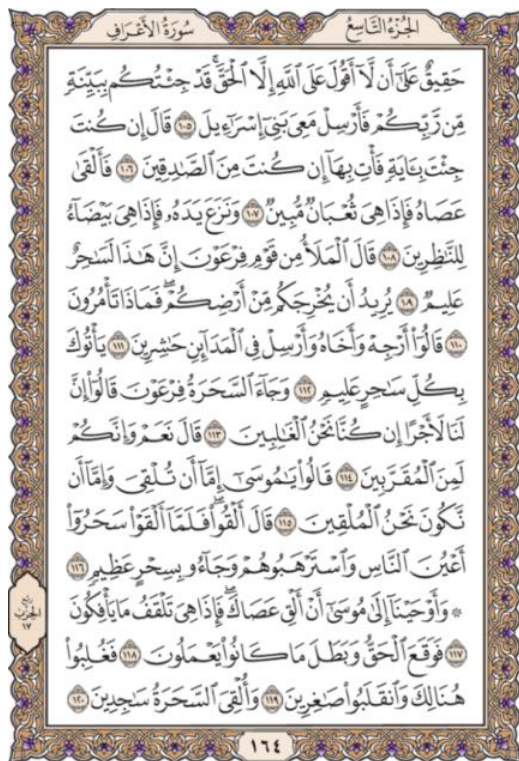 الجُزْءُ التَّاسِعُ
سُورَةُ الأَعْرَافِ
حَقِيقٌ عَلَىٰٓ أَن لَّآ أَقُولَ عَلَى ٱللَّهِ إِلَّا ٱلْحَقَّۚ قَدْ جِئْتُكُم بِبَيِّنَةٍ
مِّن رَّبِّكُمْ فَأَرْسِلْ مَعِىَ بَنِىٓ إِسْرَٰٓءِيلَ ١٠٥ قَالَ إِن كُنتَ
جِئْتَ بِـَٔايَةٍ فَأْتِ بِهَآ إِن كُنتَ مِنَ ٱلصَّٰدِقِينَ ١٠٦ فَأَلْقَىٰ
عَصَاهُ فَإِذَا هِىَ ثُعْبَانٌ مُّبِينٌ ١٠٧ وَنَزَعَ يَدَهُۥ فَإِذَا هِىَ بَيْضَآءُ
لِلنَّٰظِرِينَ ١٠٨ قَالَ ٱلْمَلَأُ مِن قَوْمِ فِرْعَوْنَ إِنَّ هَٰذَا لَسَٰحِرٌ
عَلِيمٌ ١٠٩ يُرِيدُ أَن يُخْرِجَكُم مِّنْ أَرْضِكُمْۖ فَمَاذَا تَأْمُرُونَ
١١٠ قَالُوٓا۟ أَرْجِهْ وَأَخَاهُ وَأَرْسِلْ فِى ٱلْمَدَآئِنِ حَٰشِرِينَ ١١١ يَأْتُوكَ
بِكُلِّ سَٰحِرٍ عَلِيمٍ ١١٢ وَجَآءَ ٱلسَّحَرَةُ فِرْعَوْنَ قَالُوٓا۟ إِنَّ
لَنَا لَأَجْرًا إِن كُنَّا نَحْنُ ٱلْغَٰلِبِينَ ١١٣ قَالَ نَعَمْ وَإِنَّكُمْ
لَمِنَ ٱلْمُقَرَّبِينَ ١١٤ قَالُوا۟ يَٰمُوسَىٰٓ إِمَّآ أَن تُلْقِىَ وَإِمَّآ أَن
نَّكُونَ نَحْنُ ٱلْمُلْقِينَ ١١٥ قَالَ أَلْقُوا۟ۖ فَلَمَّآ أَلْقَوْا۟ سَحَرُوٓا۟
أَعْيُنَ ٱلنَّاسِ وَٱسْتَرْهَبُوهُمْ وَجَآءُو بِسِحْرٍ عَظِيمٍ ١١٦
۞ وَأَوْحَيْنَآ إِلَىٰ مُوسَىٰٓ أَنْ أَلْقِ عَصَاكَۖ فَإِذَا هِىَ تَلْقَفُ مَا يَأْفِكُونَ
١١٧ فَوَقَعَ ٱلْحَقُّ وَبَطَلَ مَا كَانُوا۟ يَعْمَلُونَ ١١٨ فَغُلِبُوا۟
هُنَالِكَ وَٱنقَلَبُوا۟ صَٰغِرِينَ ١١٩ وَأُلْقِىَ ٱلسَّحَرَةُ سَٰجِدِينَ ١٢٠
رُبْعُ
الحِزْبِ
١٧
١٦٤